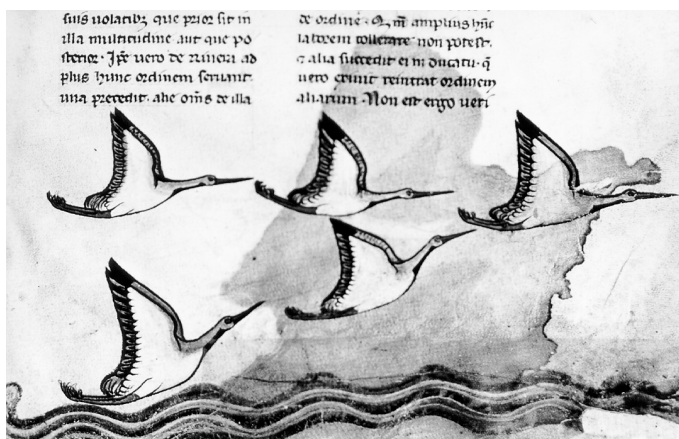 suis uolatibꝫ que prior sit in
illa multitudine aut que po
sterior· Ip̃e uero de runeri ad
plus hunc ordinem seruant·
una precedit· alie om̃s de illa
de ordine· Q m̃ amplius hũc
laborem tollerare non potest·
⁊ alia succedit ei in ducatu· q̃
uero reintrat ordinem
aliarum· Non est ergo ueri